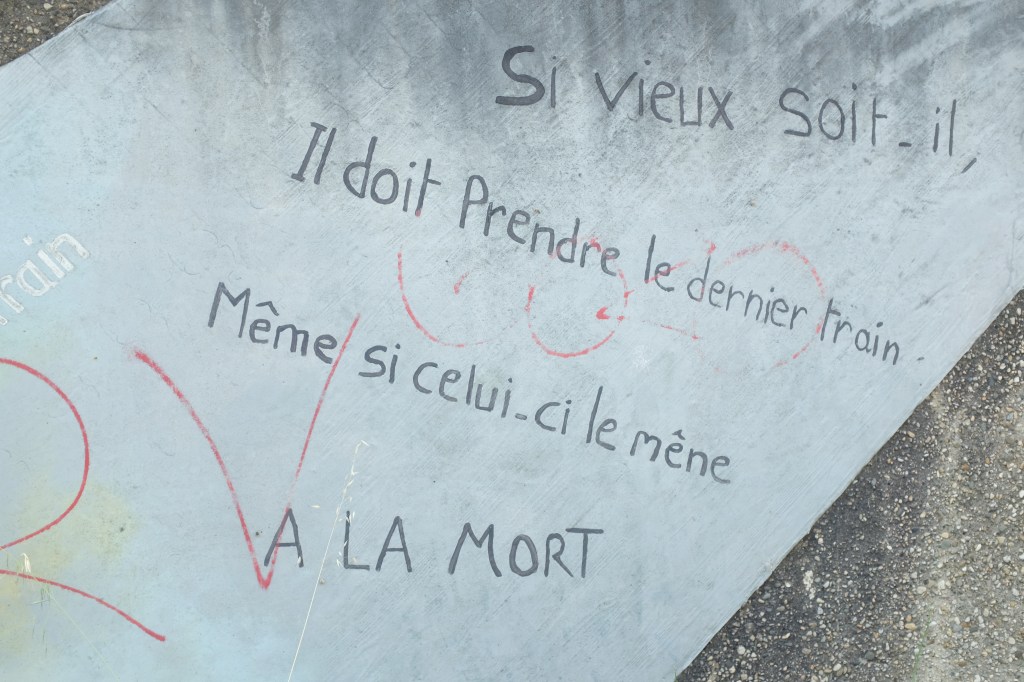 Si vieux soit-il,
Il doit Prendre le dernier train.
Même si celui-ci le mêne
A LA MORT
rain
RV